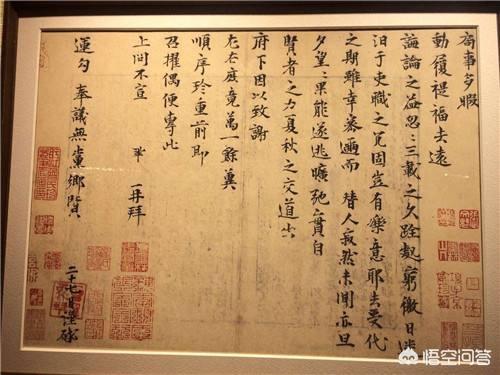 局事多暇
動履禔福去遠
誨論之益忽忽三載之久跧處窮徼日迷
汨于吏職之冗固豈有樂意耶去受代
之期雖幸密邇而 替人寂然未聞亦旦
夕望望果能遂逃曠弛實自
賢者之力夏秋之交道出
府下因以致謝
左右庶竟萬一餘冀
順序珍重前即
召擢偶便專此
上問不宣 鞏 再拜
運勾奉議無黨鄉賢 二十七日謹啓
悟空问答